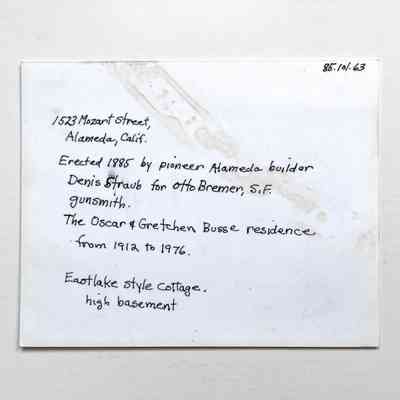 85.101.63
1523 Mozart Street,
Alameda, Calif.
Erected 1885 by pioneer Alameda builder
Denis Straub for Otto Bremer, S.F.
gunsmith.
The Oscar & Gretchen Busse residence
from 1912 to 1976.
Eastlake style cottage.
high basement